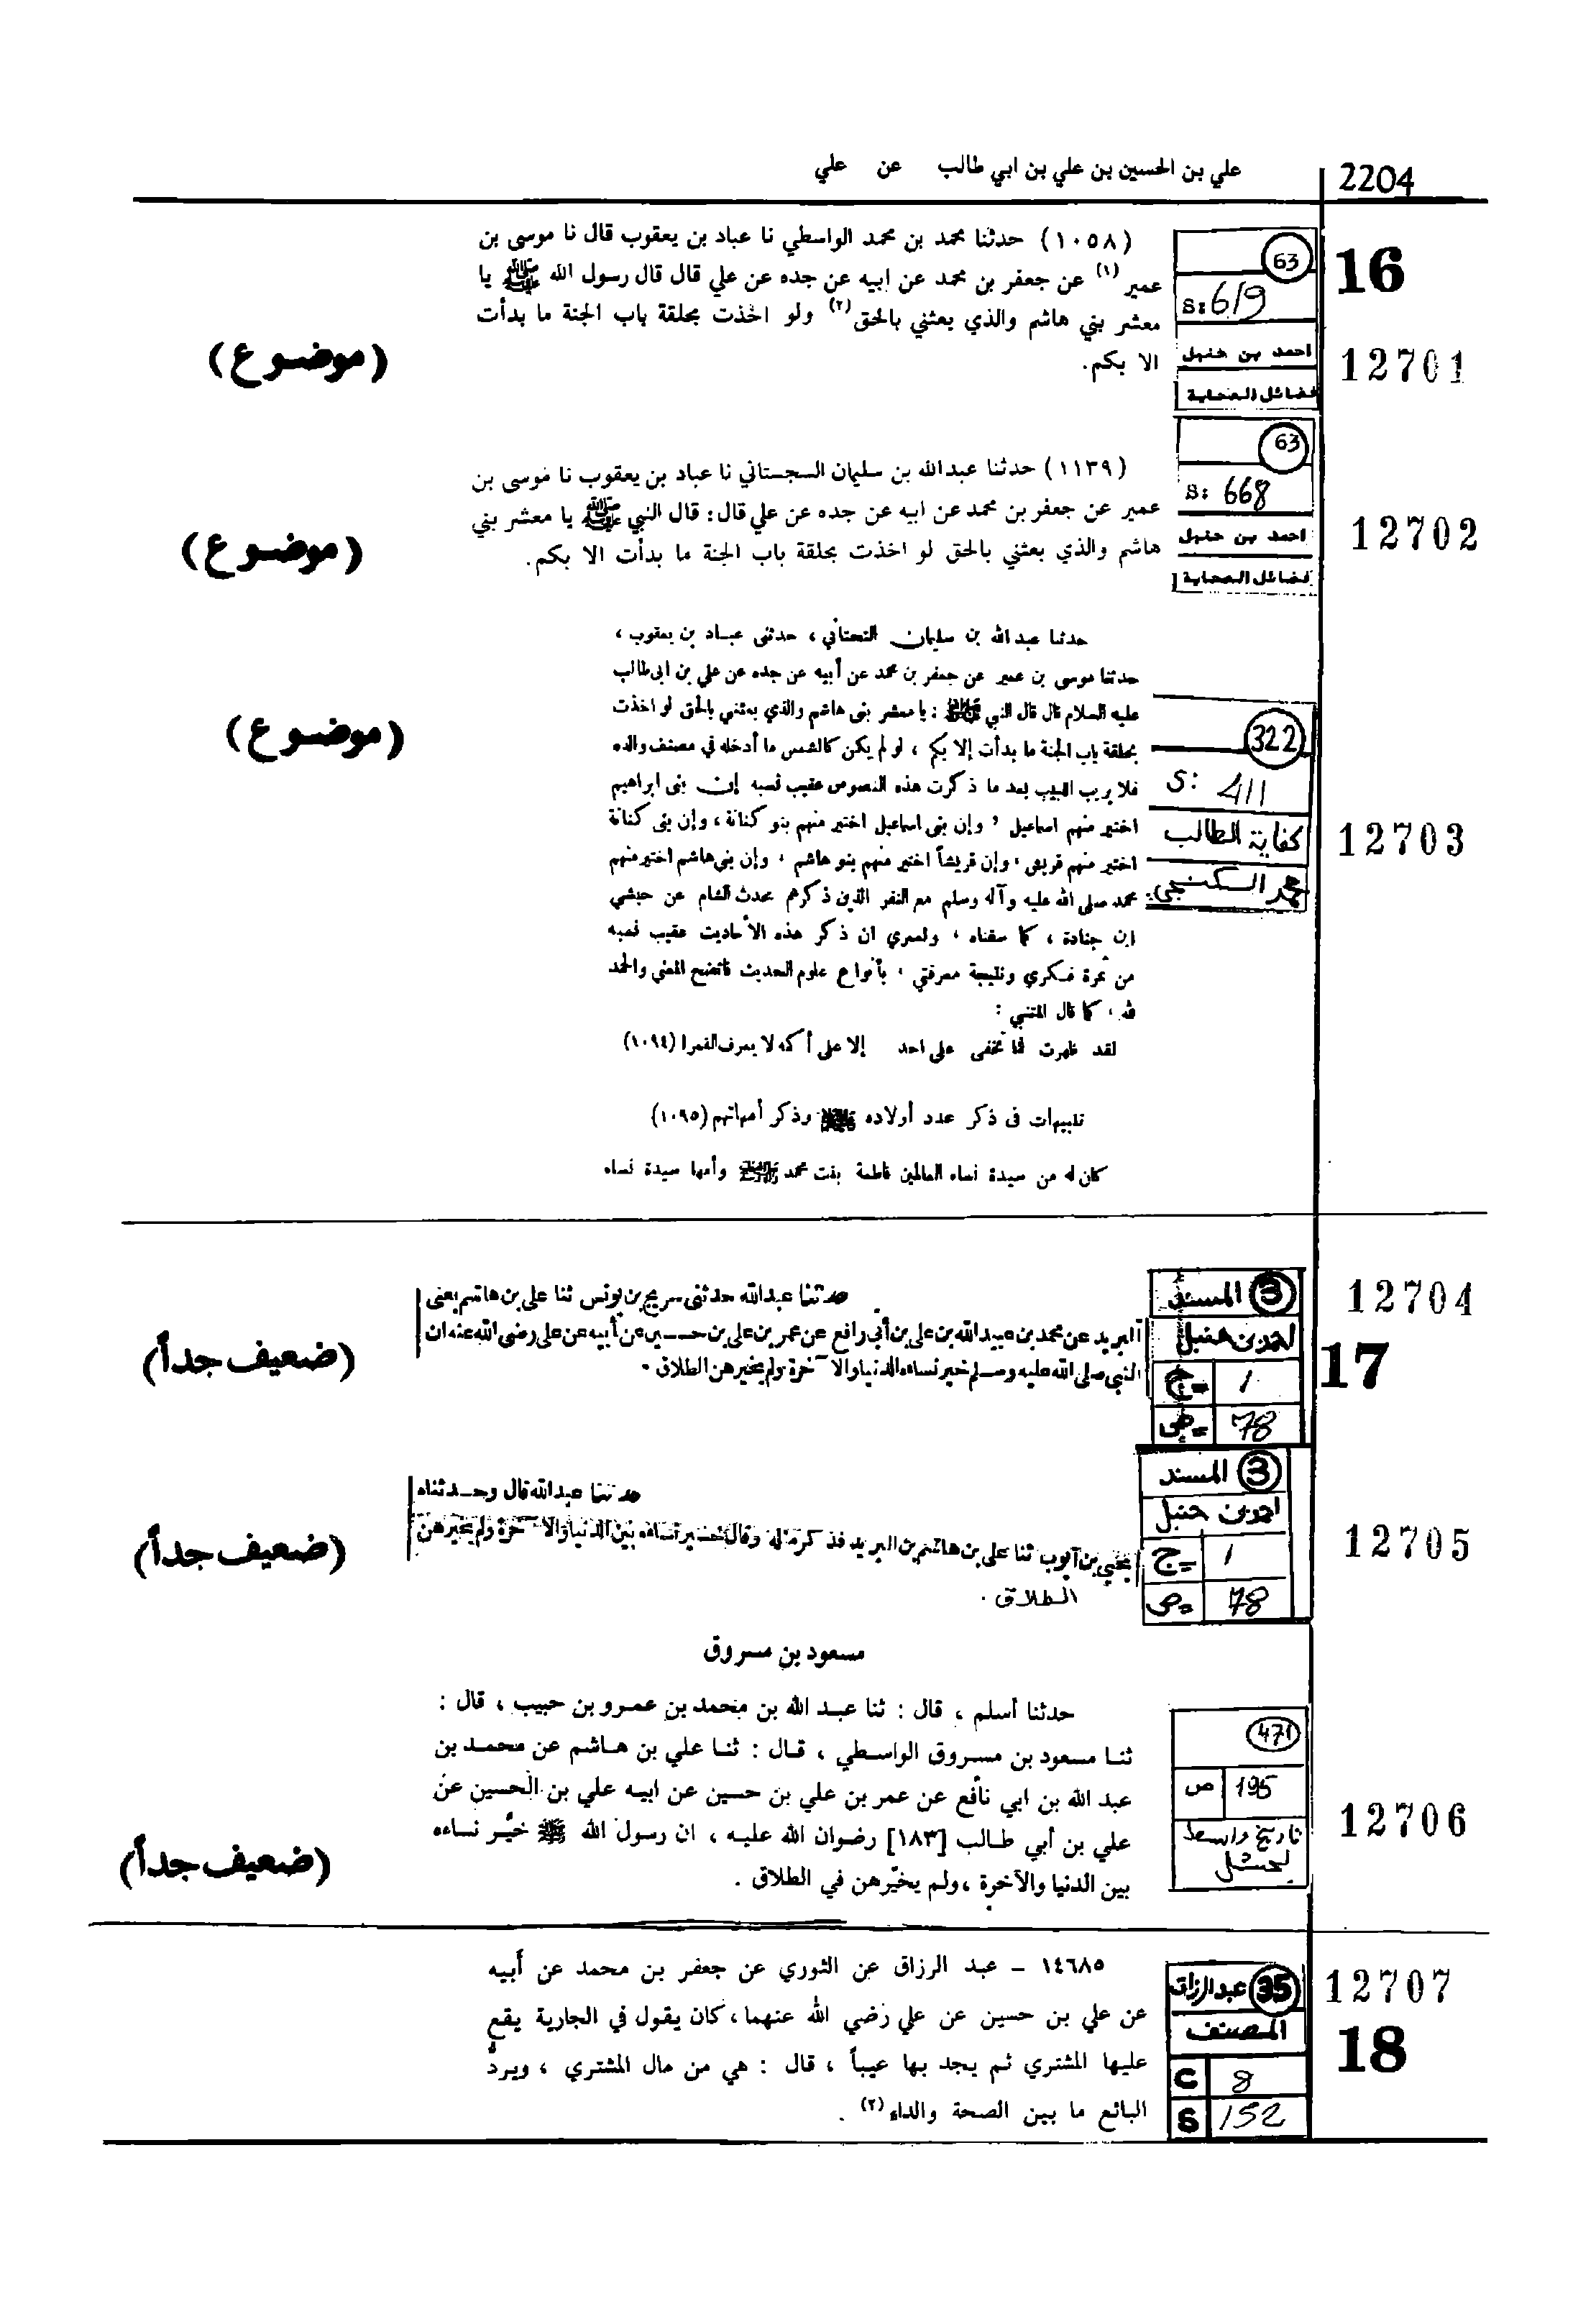 2204
علي بن الحسين بن علي بن ابي طالب عن علي
16
63
s: 619
احمد بن حنبل
فضائل الصحابة
12701
(١٠٥٨) حدثنا محمد بن محمد الواسطي نا عباد بن يعقوب قال نا موسى بن
عمير (١) عن جعفر بن محمد عن ابيه عن جده عن علي قال قال رسول الله ﷺ يا
معشر بني هاشم والذي بعثني بالحق (٢) ولو اخذت بحلقة باب الجنة ما بدأت
الا بكم.
(موضوع)
63
s: 668
احمد بن حنبل
فضائل الصحابة
12702
(١١٣٩) حدثنا عبدالله بن سليمان السجستاني نا عباد بن يعقوب نا موسى بن
عمير عن جعفر بن محمد عن ابيه عن جده عن علي قال: قال النبي ﷺ يا معشر بني
هاشم والذي بعثني بالحق لو اخذت بحلقة باب الجنة ما بدأت الا بكم.
(موضوع)
322
S: 411
كفاية الطالب
محمد الكنجي
12703
حدثنا عبد الله بن سليمان ، حدثنى عباد بن يعقوب ،
حدثنا موسى بن عمير عن جعفر بن محمد عن أبيه عن جده عن علي بن ابى طالب
عليه السلام قال قال النبي ﷺ : يا معشر بنى هاشم والذي بعثني بالحق لو اخذت
بحلقة باب الجنة ما بدأت إلا بكم ، لو لم يكن كالشمس ما أدخله في مصنف والده
فلا يريب اللبيب بعد ما ذكرت هذه النصوص عقيب نسبه إن بنى ابراهيم
اختير منهم اسماعيل ، وإن بنى اسماعيل اختير منهم بنو كنانة ، وإن بنى كنانة
اختير منهم قريش ، وإن قريشاً اختير منهم بنو هاشم ، وإن بني هاشم اختير منهم
محمد صلى الله عليه وآله وسلم مع النفر الذين ذكرهم محدث الشام عن حبشي
ابن جنادة ، كما سقناه ، ولعمري ان ذكر هذه الأحاديث عقيب نسبه
من ثمرة فكري ونتيجة معرفتي ، بأنواع علوم الحديث فاتضح المعنى والحمد
لله ، كما قال المتنبي :
لقد ظهرت فما تخفى على احد إلا على أكمه لا يعرف القمرا (١٠٩٤)
تنبيهات فى ذكر عدد أولاده وذكر أمهاتهم (١٠٩٥)
كان له من سيدة نساء العالمين فاطمة بنت محمد وأمها سيدة نساء
(موضوع)
3 المسند
احمد بن حنبل
ج 1
ص 78
12704
17
حدثنا عبدالله حدثنى سريج بن يونس ثنا على بن هاشم يعنى
البريد عن محمد بن عبيد الله بن على بن أبي رافع عن عمر بن على بن حسين عن أبيه عن على رضى الله عنه ان
النبى صلى الله عليه وسلم خير نساءه الدنيا والا خرة ولم يخيرهن الطلاق .
(ضعيف جداً)
3 المسند
احمد بن حنبل
ج 1
ص 78
12705
حدثنا عبدالله قال وحدثناه
يحيى بن أيوب ثنا على بن هاشم بن البريد فذكر مثله وقال خير نساءه بين الدنيا والا خرة ولم يخيرهن
الطلاق .
(ضعيف جداً)
مسعود بن مسروق
471
ص 195
تاريخ واسط
لبحشل
12706
حدثنا أسلم ، قال : ثنا عبد الله بن محمد بن عمرو بن حبيب ، قال :
ثنا مسعود بن مسروق الواسطي ، قال : ثنا علي بن هاشم عن محمد بن
عبد الله بن ابي نافع عن عمر بن علي بن حسين عن ابيه علي بن الحسين عن
علي بن أبي طالب [١٨٣] رضوان الله عليه ، ان رسول الله ﷺ خيّر نساءه
بين الدنيا والآخرة ، ولم يخيّرهن في الطلاق .
(ضعيف جداً)
35 عبد الرزاق
المصنف
C 8
S 152
12707
18
١٤٦٨٥ - عبد الرزاق عن الثوري عن جعفر بن محمد عن أبيه
عن علي بن حسين عن علي رضي الله عنهما ، كان يقول في الجارية يقع
عليها المشتري ثم يجد بها عيباً ، قال : هي من مال المشتري ، ويردّ
البائع ما بين الصحة والداء (٢) .